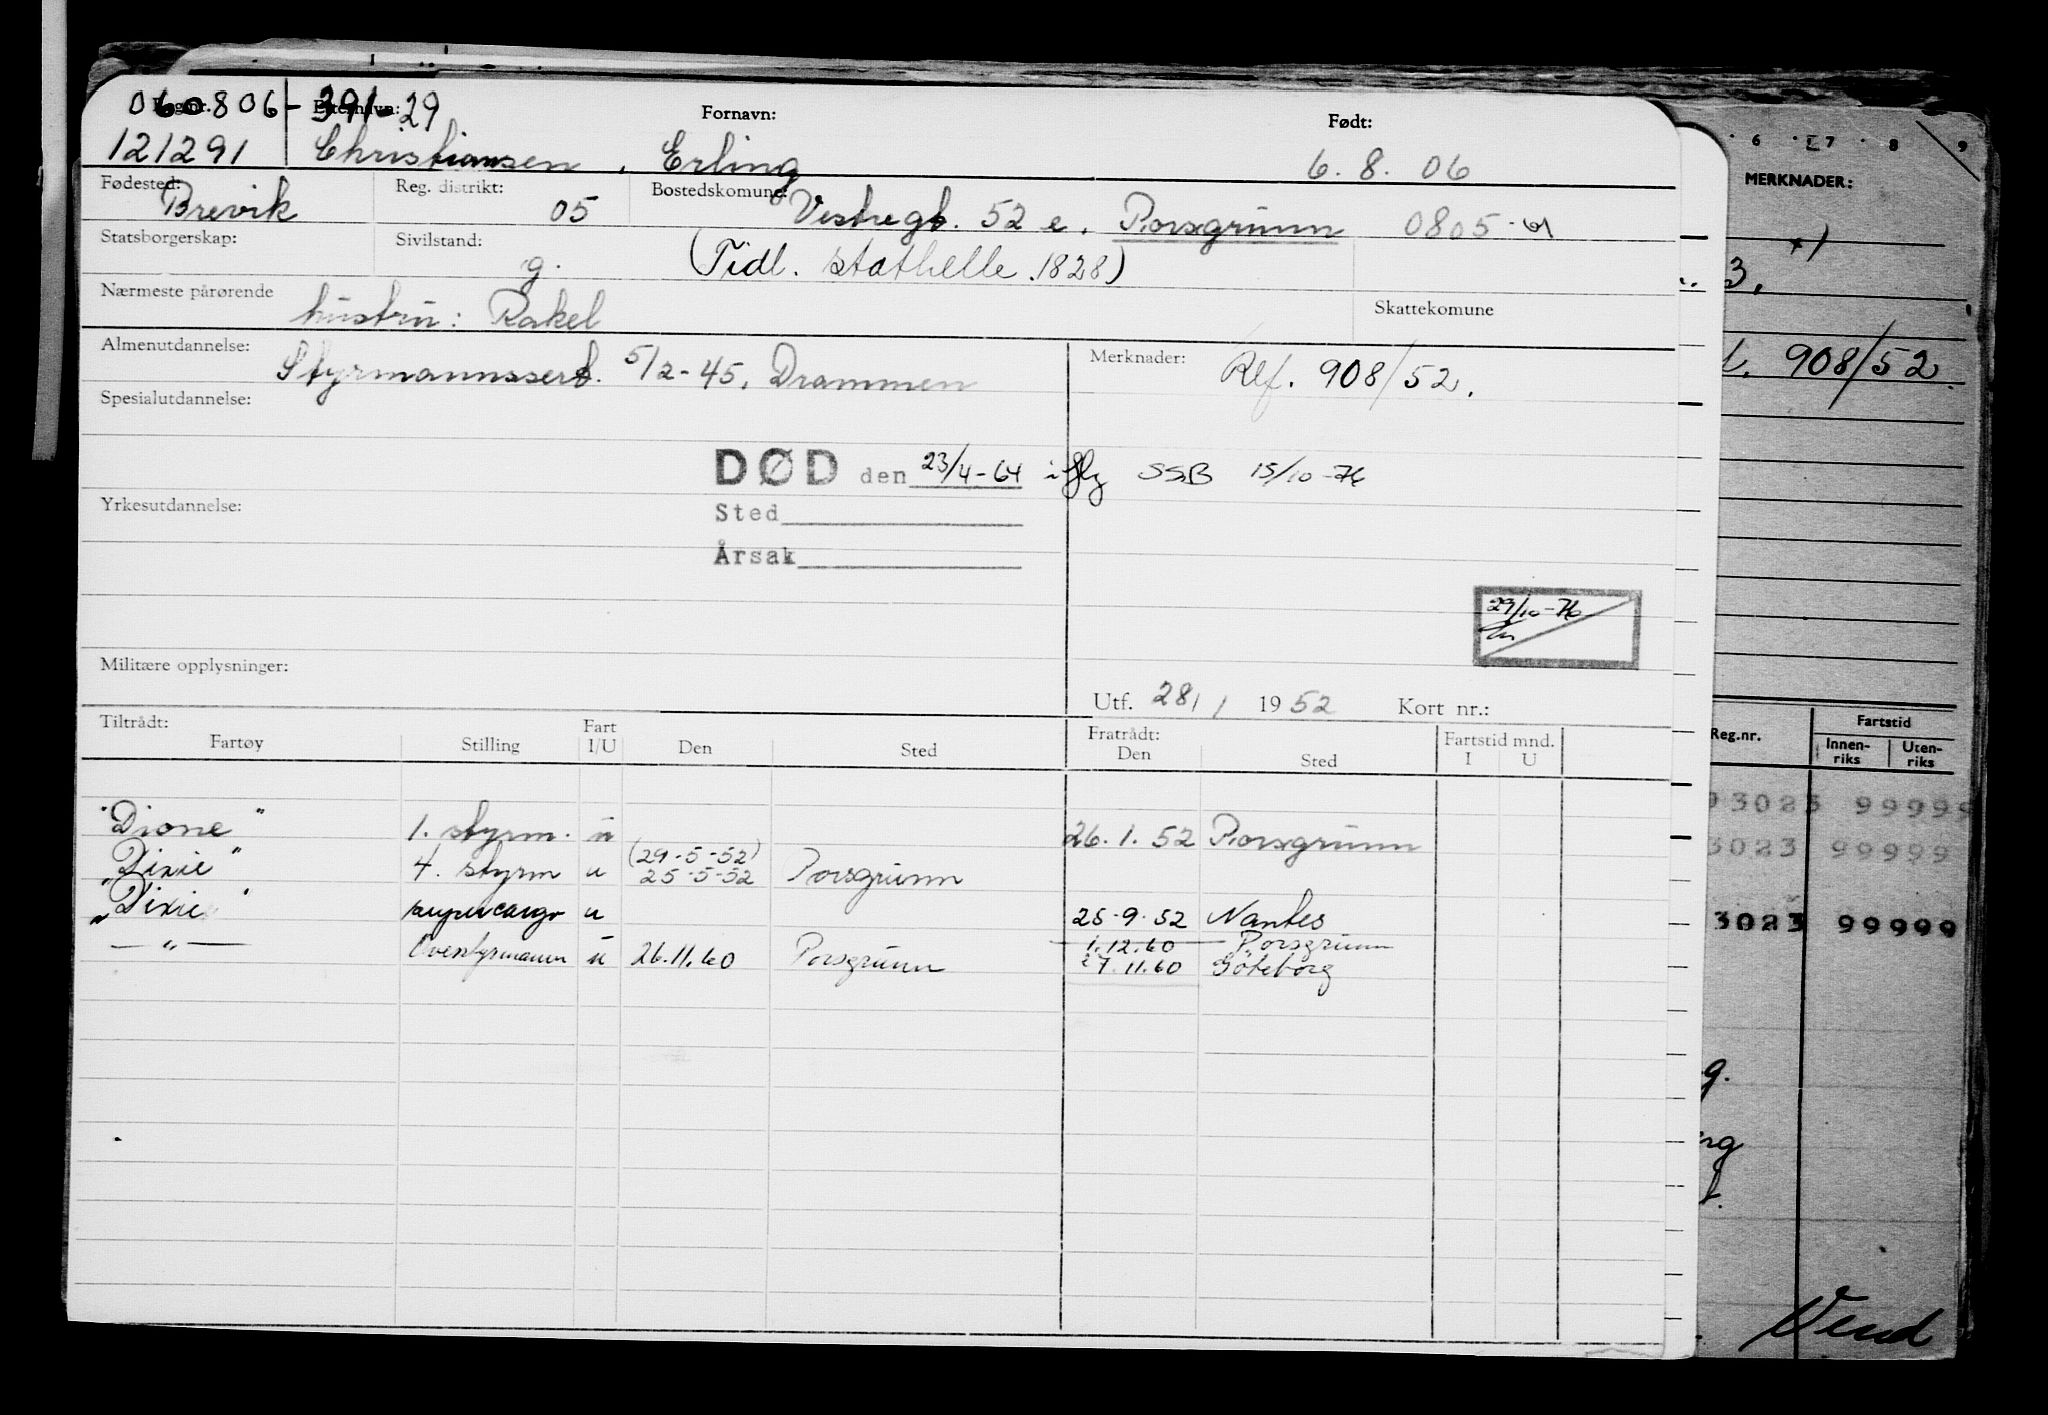 060806-391.29
Reg.nr. Etternavn: Fornavn: Født:
121291 Christiansen, Erling 6.8.06
Fødested: Reg. distrikt: Bostedskomune:
Brevik 05 Vestregt. 52 e. Porsgrunn 0805-61
Statsborgerskap: Sivilstand:
g. (Tidl. Stathelle 1828)
Nærmeste pårørende Skattekomune
hustru: Rakel
Almenutdannelse: Merknader:
Styrmannssert. 5/2-45, Drammen Ref. 908/52.
Spesialutdannelse:
DØD den 23/4-64 SSB 15/10-76
Yrkesutdannelse:
Sted
Årsak
29/10-76
Militære opplysninger:
Utf. 28/1 1952 Kort nr.:
Tiltrådt: Fratrådt:
Fartøy Stilling Fart I/U Den Sted Den Sted Fartstid mnd. I U
"Dione" 1. styrm. u 26.1.52 Porsgrunn
"Dixie" 4. styrm u (29-5-52) 25-5-52 Porsgrunn
"Dixie" supercargo u 25.9.52 Nantes
1.12.60 Porsgrunn
—"— Overstyrmann u 26.11.60 Porsgrunn 27.11.60 Göteborg
6 7 8 9
MERKNADER:
x)
3.
908/52.
Reg.nr. Fartstid
Innenriks Utenriks
93023 99999
3023 99999
3023 99999
g.
rg
Vend